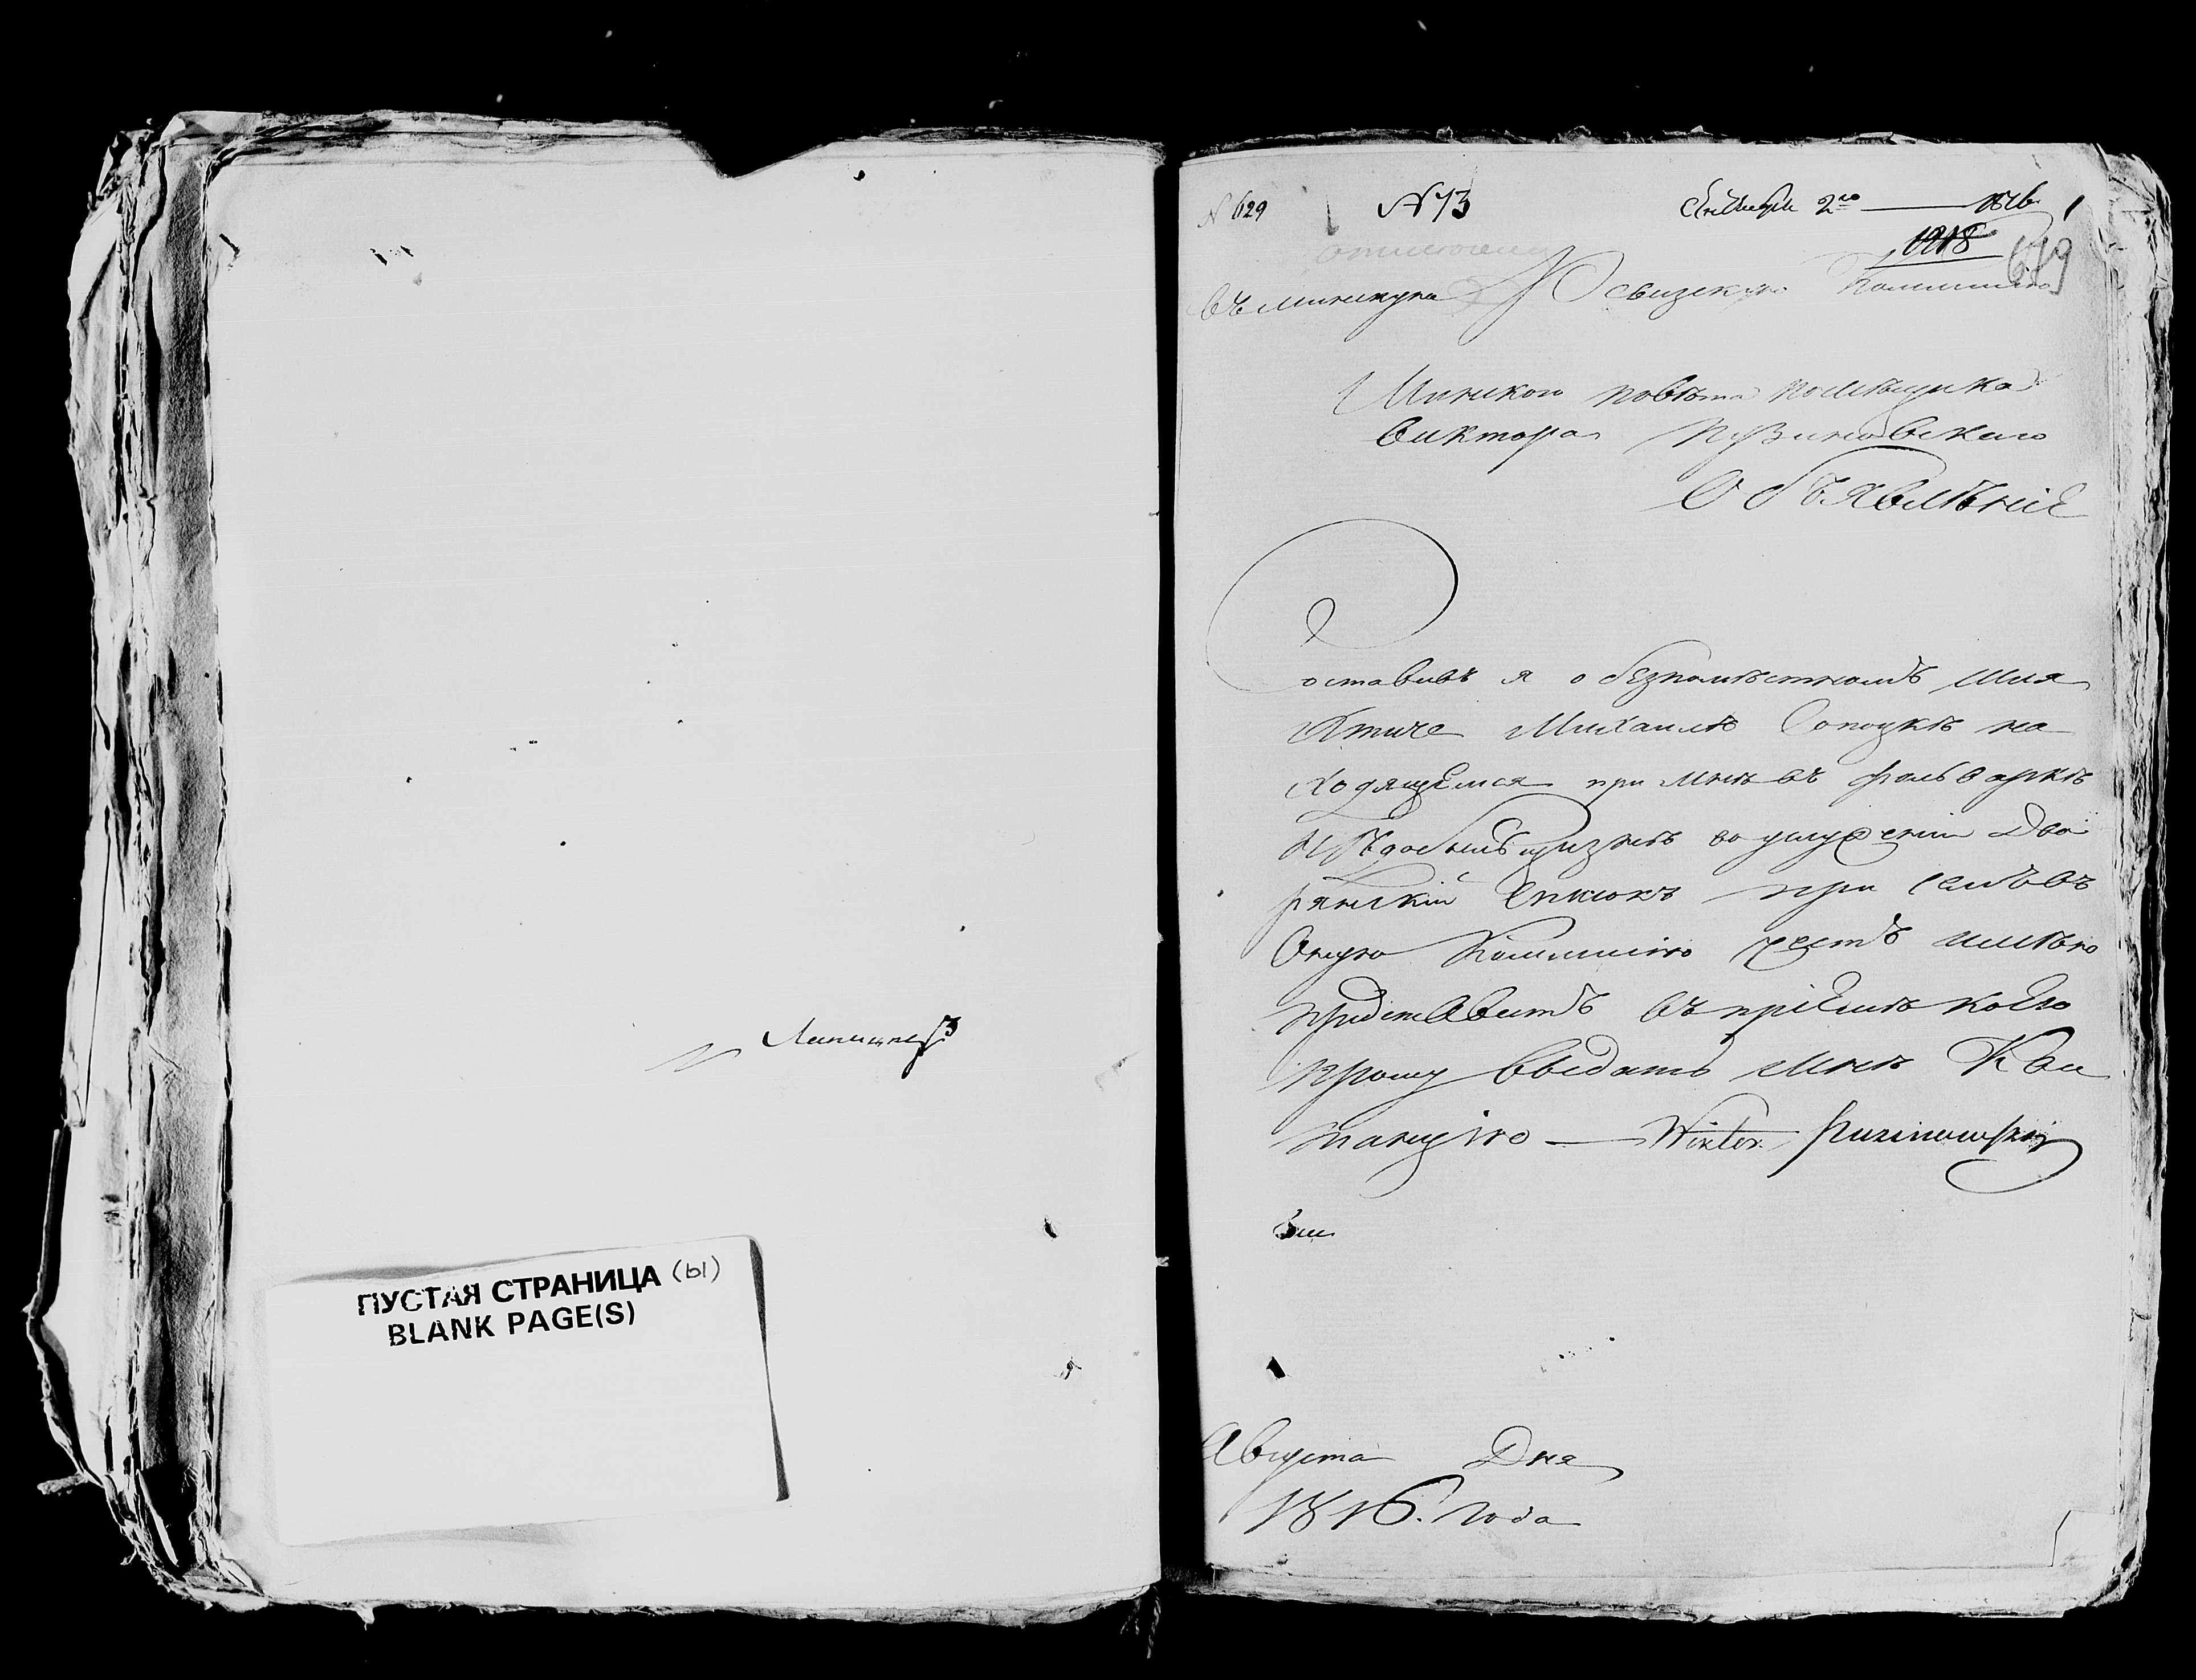 ПУСТАЯ СТРАНИЦА (ы)
BLANK PAGE(S)
N 629
N 73
2го 1816
1918
619
въ минскую Ревизскую Коммисію
Минскаго повѣта помѣщика
Виктора Пузиновскаго
Объявлѣніе
оставивъ я о безпомѣстномъ шля
хтиче Михаилѣ Сопоцкѣ на
ходящемся при мнѣ въ фольваркѣ
рянскій списокъ при семъ въ
Оную Коммисію честь имѣю
придставить въ пріемѣ коего
прошу выдать мнѣ Кви
танцію — Wiktor Puzinowski
Августа Дня
1816. года